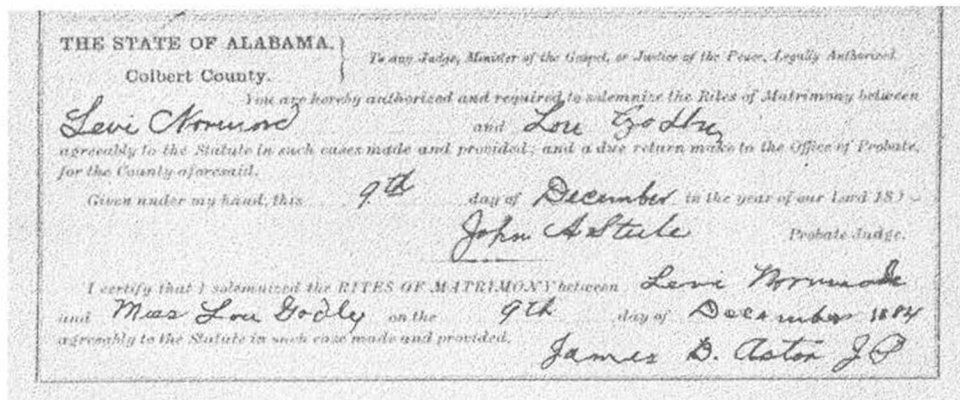 THE STATE OF ALABAMA,
Colbert County.
To any Judge, Minister of the Gospel, or Justice of the Peace, Legally Authorized.
You are hereby authorized and required to solemnize the Rites of Matrimony between
Levi Normond and Lou Godby
agreeably to the Statute in such cases made and provided; and a due return make to the Office of Probate,
for the County aforesaid.
Given under my hand, this 9th day of December in the year of our Lord 18
John A Steele Probate Judge.
I certify that I solemnized the RITES OF MATRIMONY between Levi
and Miss Lou Godly on the 9th day of December 1884
agreeably to the Statute in such case made and provided.
James D. Aston J P